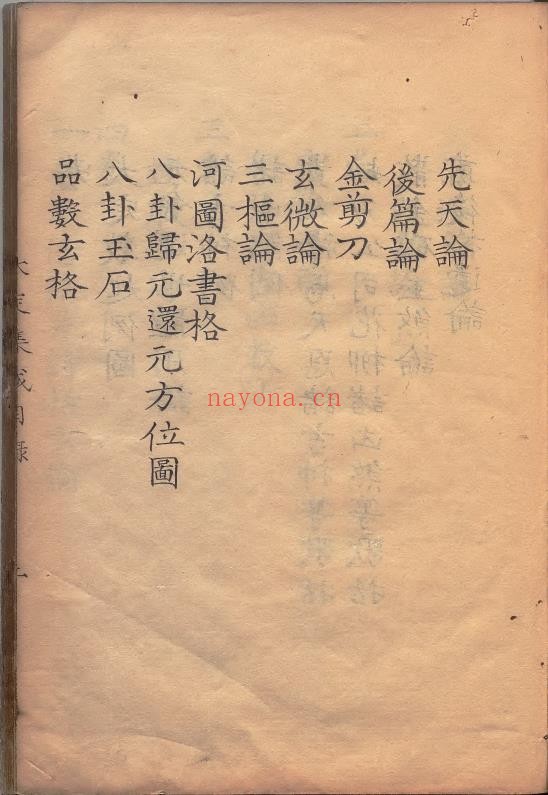 先天論
後篇論
金剪刀
玄微論
三樞論
河圖洛書格
八卦歸元還元方位圖
八卦玉石
品數玄格
集成目錄
nayona.cn